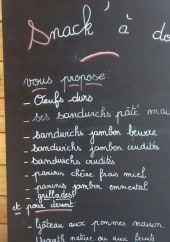 Snack' à do
vous propose:
- Oeufs durs
- Ses sandwichs pâté mai
- sandwichs jambon beurre
- sandwichs jambon crudités
- sandwichs crudités
- paninis chèvre frais miel
- paninis jambon emmental
- grillades
et pour dessert:
- Gâteau aux pommes maison
- Yaourts nature ou aux fruits